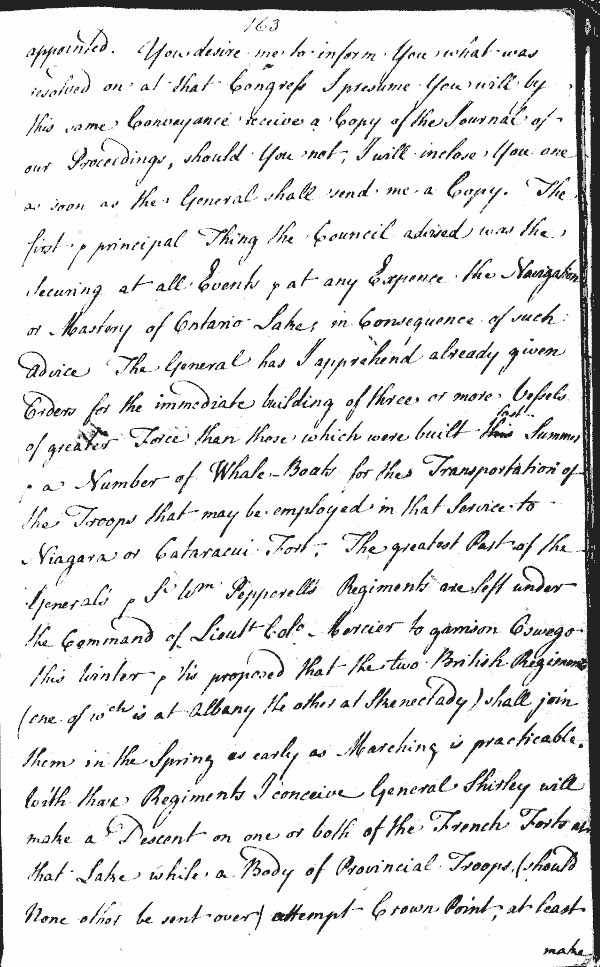 163
appointed. You desire me to inform You what was
resolved on at that Congress I presume You will by
this same Conveyance receive a Copy of the Journal of
our Proceedings, should You not, I will inclose You one
as soon as the General shall send me a Copy. The
first & principal Thing the Council advised was the
securing at all Events & at any Expence the Navigation
or Mastery of Ontario Lake; in Consequence of such
Advice The General has I apprehend already given
Orders for the immediate building of three or more Vessels
of greater Force than those which were built this last Summer
& a Number of Whale-Boats for the Transportation of
the Troops that may be employed in that Service to
Niagara or Cataracui Fort. The greatest Part of the
General's & Sr. Wm Pepperell's Regiments are left under
the Command of Lieut Colo. Mercier to garrison Oswego
this Winter & 'tis proposed that the two British Regiments
(one of wch is at Albany the other at Skenectady) shall join
them in the Spring as early as Marching is practicable.
With these Regiments I conceive General Shirley will
make a Descent on one or both of the French Forts on
that Lake while a Body of Provincial Troops (should
None other be sent over) attempt Crown Point, at least
make